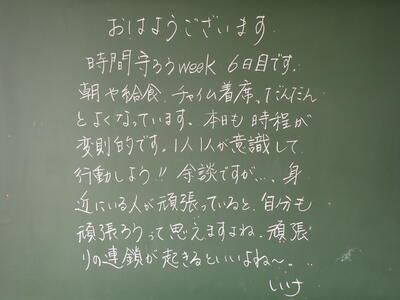 おはようございます
時間守ろうweek 6日目です。
朝や給食、チャイム着席、だんだん
とよくなっています。本日も時程が
変則的です。1人1人が意識して
行動しよう!! 余談ですが…、身
近にいる人が頑張っていると、自分も
頑張ろうって思えますよね。頑張
りの連鎖が起きるといいよね〜。